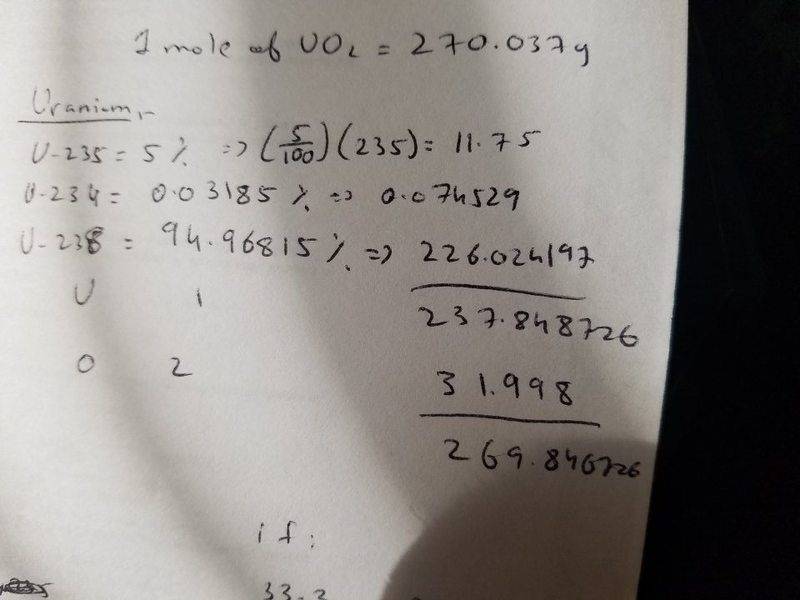 1 mole of UO2 = 270.037g
Uranium,-
U-235 = 5 % => (5/100)(235) = 11.75
U-234 = 0.03185 % => 0.074529
U-238 = 94.96815 % => 226.024197
U 1
237.848726
O 2
31.998
269.846726
if:
33.3